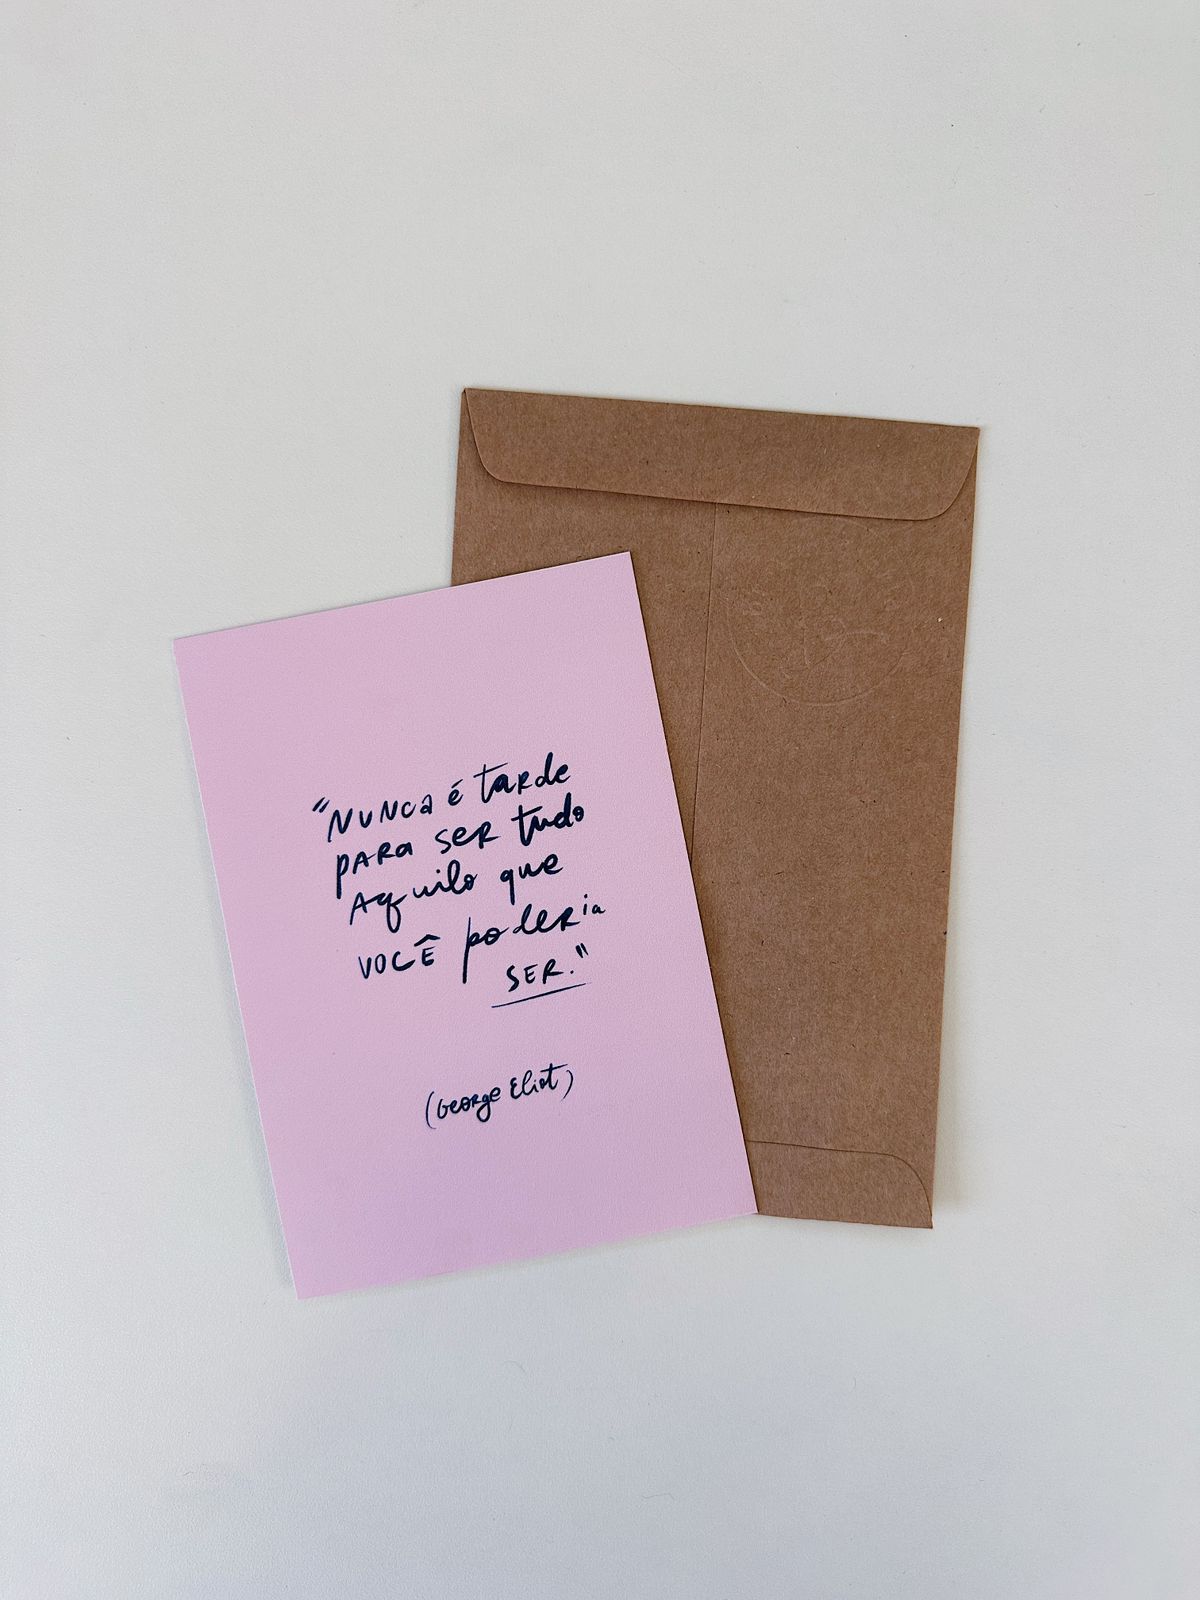 "Nunca é tarde
para ser tudo
Aquilo que
você poderia
ser."
(George Eliot)